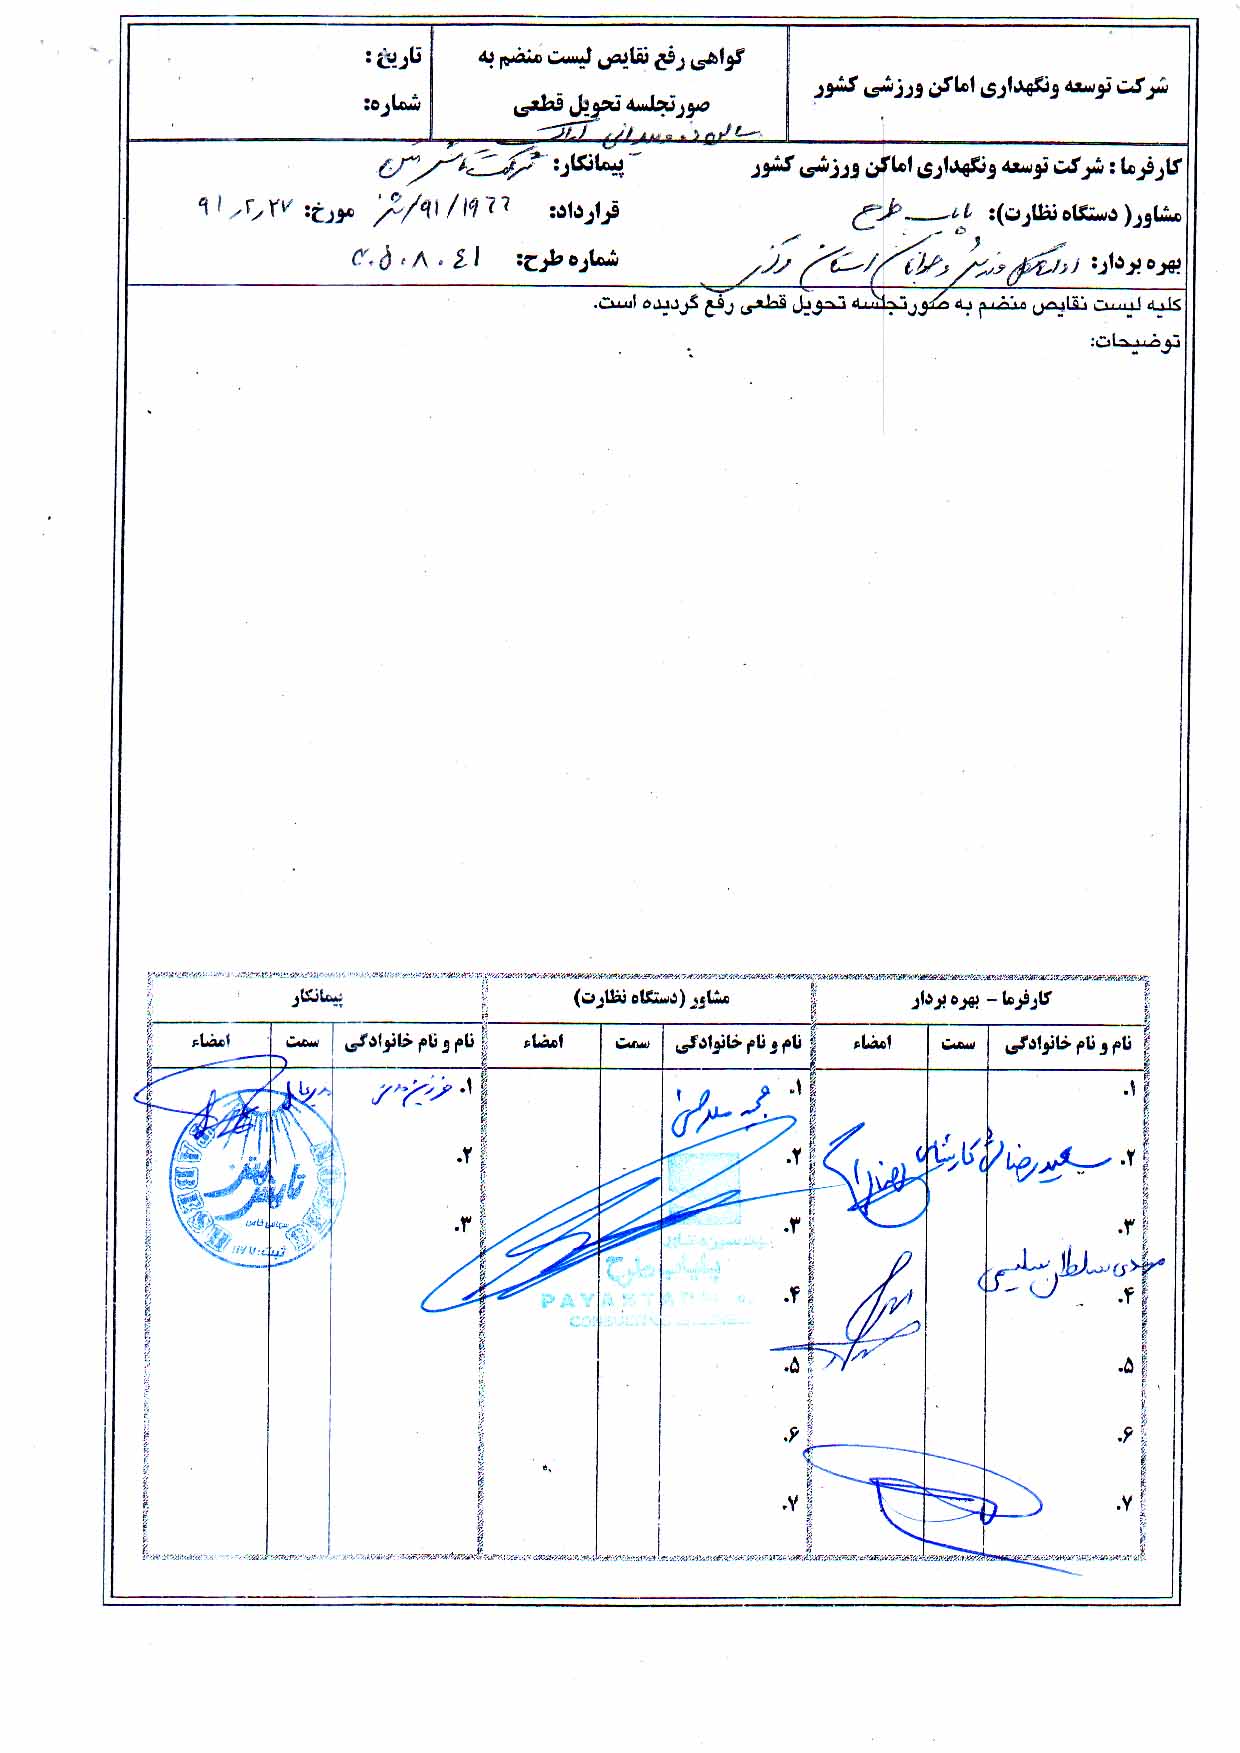 شرکت توسعه ونگهداری اماکن ورزشی کشور
گواهی رفع نقایص لیست منضم به
صورتجلسه تحویل قطعی
سالن دوومیدانی اراک
تاریخ :
شماره:
کارفرما : شرکت توسعه ونگهداری اماکن ورزشی کشور
پیمانکار: شرکت تابش بتن
مشاور( دستگاه نظارت): پایاب طرح
قرارداد: ۹۱/۱۹۶۶/ش مورخ: ۹۱٫۲٫۲۷
بهره بردار: اداره کل ورزش و جوانان استان مرکزی
شماره طرح: ۴۰۵۰۸۰۴۱
کلیه لیست نقایص منضم به صورتجلسه تحویل قطعی رفع گردیده است.
توضیحات:
کارفرما – بهره بردار
مشاور (دستگاه نظارت)
پیمانکار
نام و نام خانوادگی سمت امضاء
نام و نام خانوادگی سمت امضاء
نام و نام خانوادگی سمت امضاء
۱.
۲. سعیدرضا کارشناس
۳.
مهدی سلطان سلیمی
۴.
۵.
۶.
۷.
۱.
۲.
۳.
۴.
۵.
۶.
۷.
پایاب طرح
۱. مدیرعامل
۲.
۳.
تابش بتن
سهامی خاص